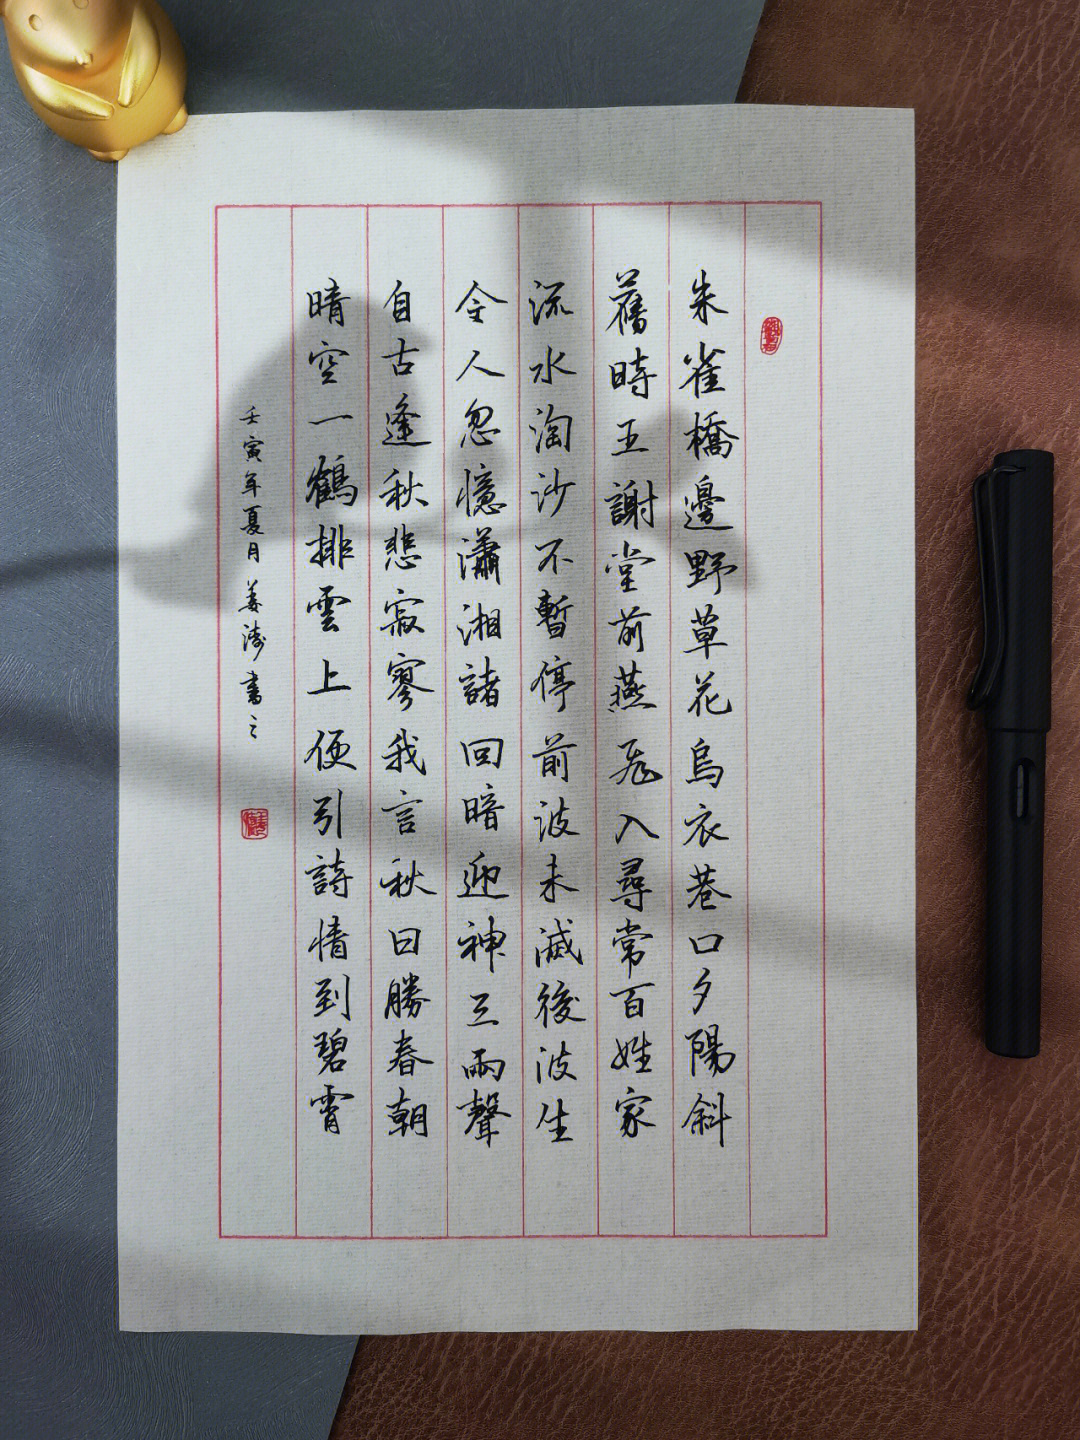 朱雀橋邊野草花烏衣巷口夕陽斜
舊時王謝堂前燕飛入尋常百姓家
流水淘沙不暫停前波未滅後波生
令人忽憶瀟湘諸回暗迎神三兩聲
自古逢秋悲寂寥我言秋日勝春朝
晴空一鶴排雲上便引詩情到碧霄
壬寅年夏月姜濤書之